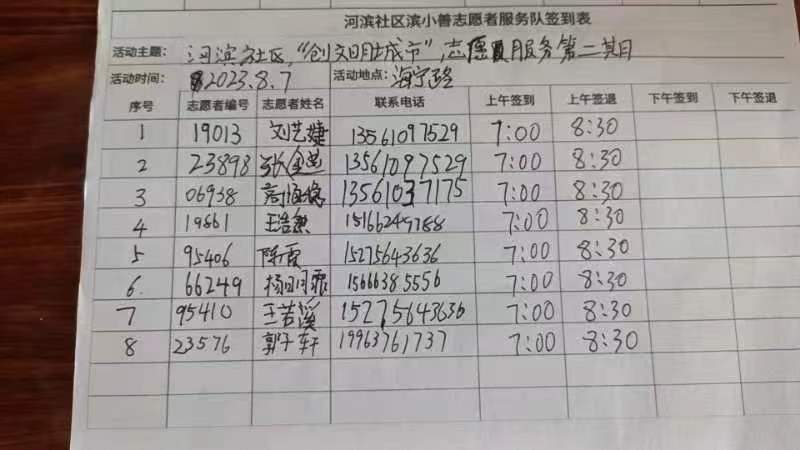 河滨社区滨小善志愿者服务队签到表
活动主题: 河滨社区,"创文明城市",志愿服务第二其日
活动时间: 2023.8.7 活动地点: 海宁路
序号 志愿者编号 志愿者姓名 联系电话 上午签到 上午签退 下午签到 下午签退
1 19013 刘艺婕 13561097529 7:00 8:30
2 23898 13561097529 7:00 8:30
3 06938 13561037175 7:00 8:30
4 19861 王浩 15166249788 7:00 8:30
5 95406 陈霞 15275643636 7:00 8:30
6. 66249 杨 15666385556 7:00 8:30
7 95410 王若溪 15275643636 7:00 8:30
8 23576 郭子轩 19963761737 7:00 8:30